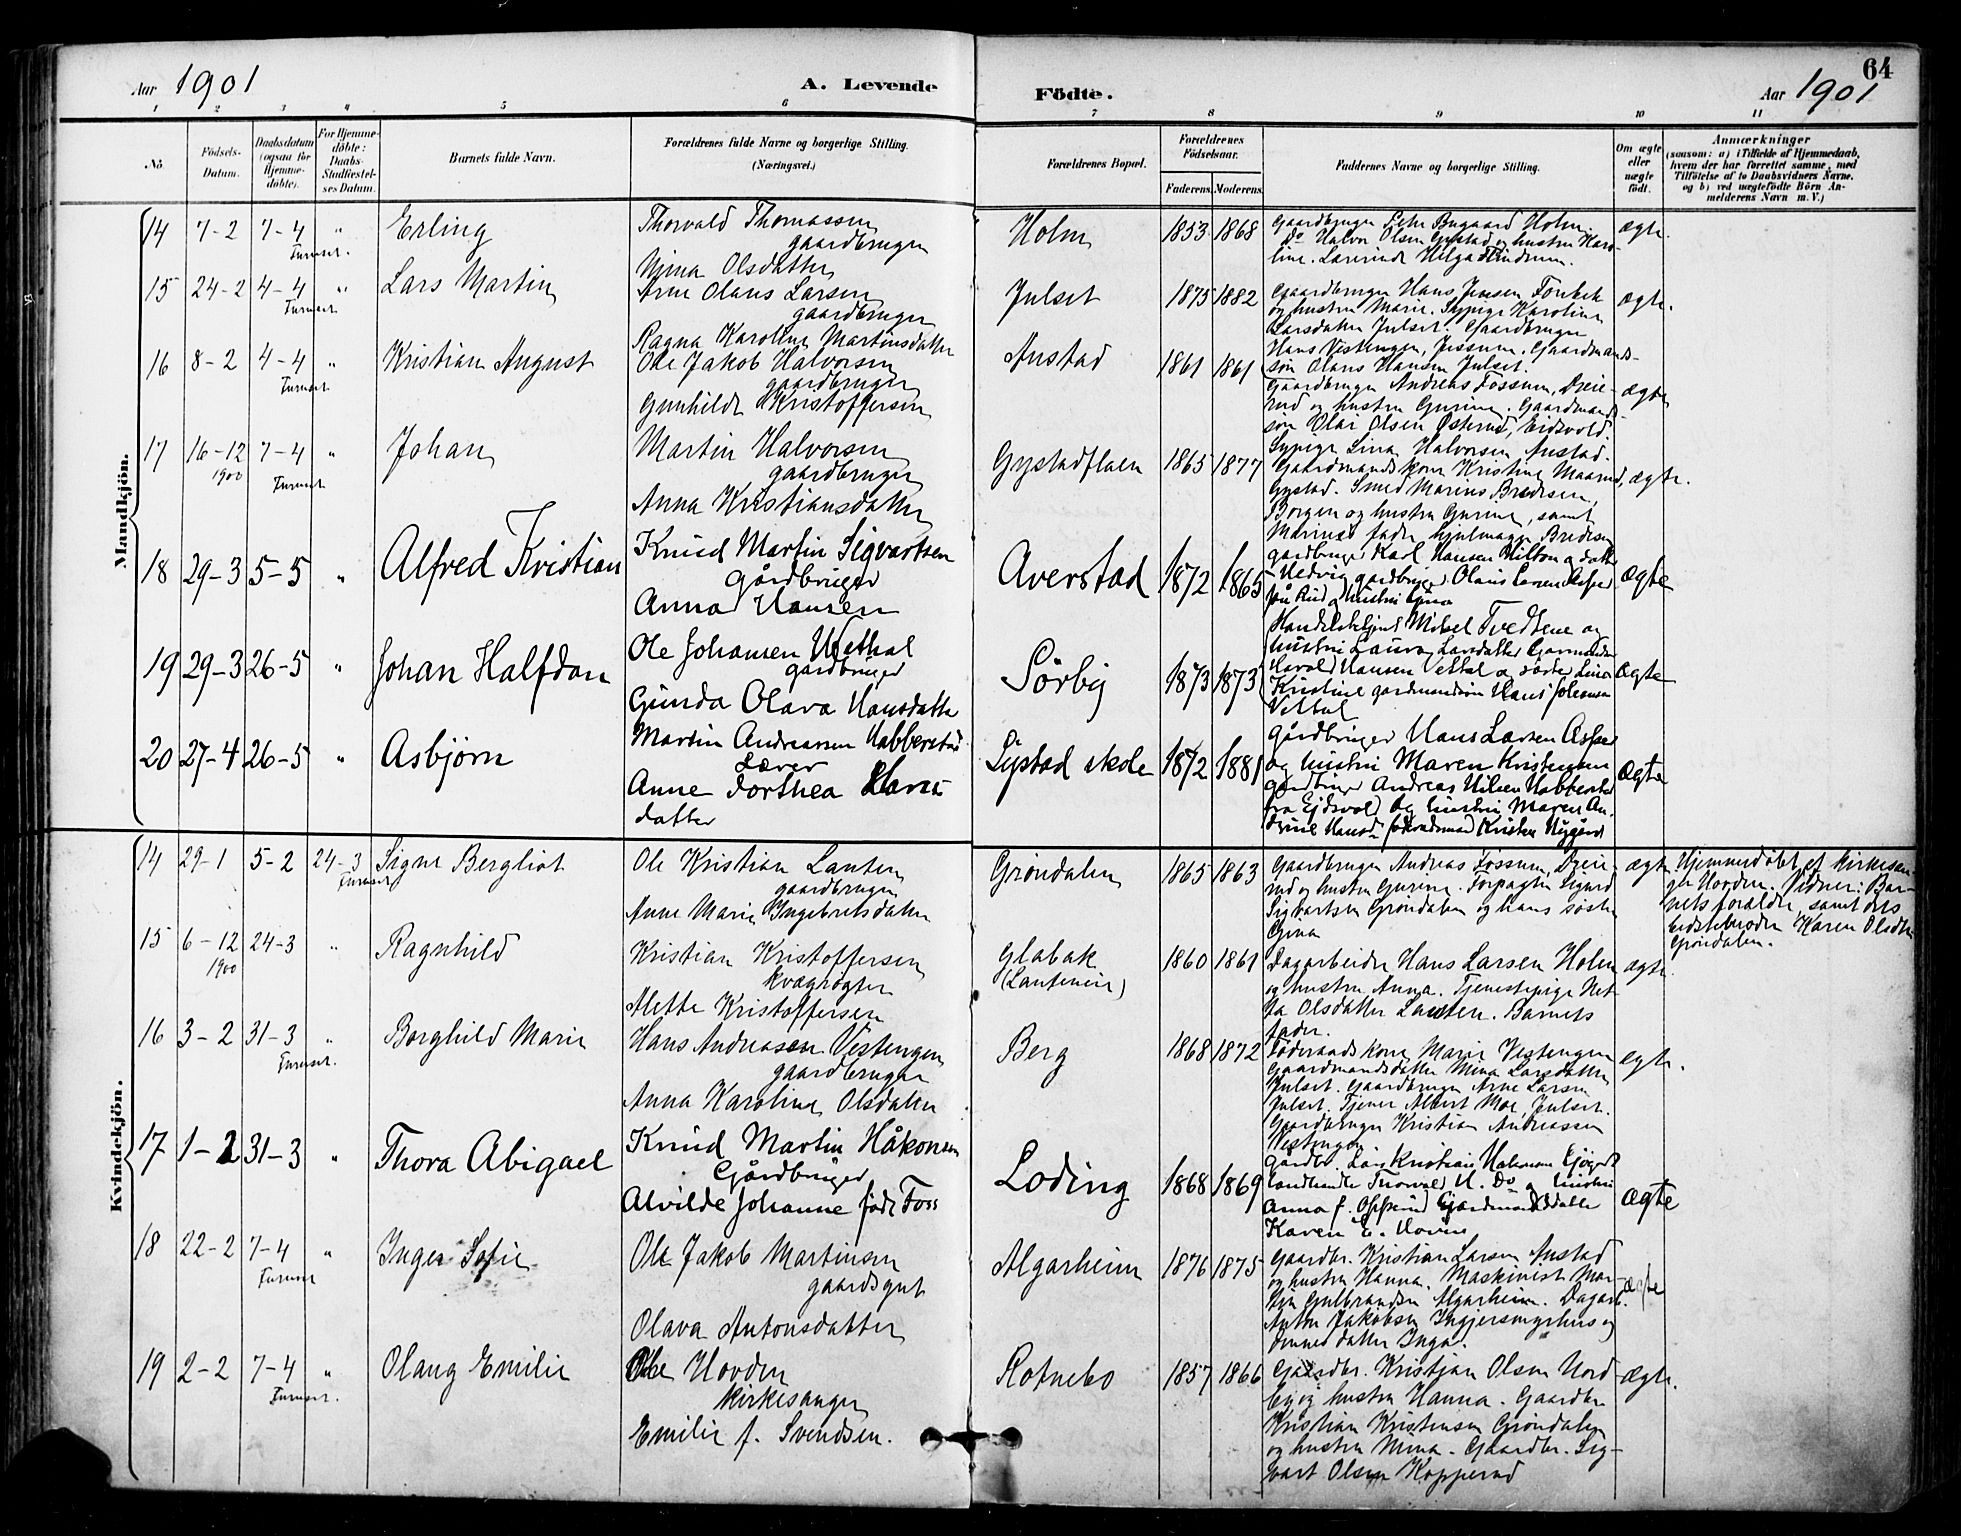 64
Aar 1901
A. Levende
Födte.
Aar 1901
1 2 3 4 5 6 7 8 9 10 11
No.
Födsels-Datum.
Daabsdatum (ogsaa for Hjemmedöbte).
For Hjemmedöbte: Daabs-Stadfæstelses Datum.
Barnets fulde Navn.
Forældrenes fulde Navne og borgerlige Stilling. (Næringsvei.)
Forældrenes Bopæl.
Forældrenes Födselsaar.
Faderens. Moderens.
Faddernes Navne og borgerlige Stilling.
Om ægte eller uægte födt.
Anmærkninger
(saasom: a) i Tilfælde af Hjemmedaab,
hvem der har forrettet samme, med
Tilföielse af to Daabsvidners Navne,
og b) ved uægtefödte Börn An-
melderens Navn m. V.)
Mandkjön.
14 7-2 7-4 " Erling
Furuset.
Thorvald Thomassen
gaardbruger
Mina Olsdatter
Holm 1853 1868
Holm.
Do Halvor Olsen Gystad og hustru Karo-
line. Lærerinde Helga
ægte.
15 24-2 4-4 " Lars Martin
Furuset
Arne Olaus Larsen
gaardbruger
Ragna Karoline Martinsdatter
Julset 1875 1882
Gaardbruger Hans Jensen
og hustru Marie. Sypige Karoline
Larsdatter Julset. Gaardbruger
Hans Vestengen, Jessum. Gaardmands-
søn Olaus Hansen Julset.
ægte.
16 8-2 4-4 " Kristian August
Furuset
Ole Jakob Halvorsen
gaardbruger
Gunhilde Kristoffersen
Austad 1861 1861
Gaardbruger Andreas Fossum, Dreie-
rud og hustru Gurine. Gaardmands-
søn Olai Olsen Østerud, Eidsvold.
Sypige Lina Halvorsen Austad.
ægte
17 16-12 7-4 " Johan
1900 Furuset
Martin Halvorsen
gaardbruger
Anna Kristiansdatter
Gystadflaen 1865 1877
Gaardmandskone Kristine Maarud,
Gystad. Smed Marius Bredesen,
Borgen og hustru Gurine, samt
Marinus' fader hjulmager Bredesen
ægte.
18 29-3 5-5 " Alfred Kristian
Knud Martin Sigvartsen
Gårdbruger
Anna Hansen
Averstad 1872 1865
gardbruger Karl Hansen Hilton og datter
Hedvig gardbruger Olaus Larsen
Rud og hustru Gina
ægte
19 29-3 26-5 " Johan Halfdan
Ole Johansen Vethal
gårdbruger
Gunda Olava Hansdatter
Sörby 1873 1873
Mikel Tvedtene og
hustru Laura Larsdatter
Harald Hansen Vettal og søster Lina
Kristine gardmandssøn Hans Johansen
Vettal
ægte
20 27-4 26-5 " Asbjørn
Martin Andreassen Habberstad
Lærer
Anne Dorthea Hans-
datter
Gystad skole 1872 1881
gårdbruger Hans Larsen Asper
og hustru Maren Kristensen
gårdbruger Andreas Nilsen Habberstad
fra Ejdsvold og hustru Maren An-
drine Hansd. Kristen Nygård
ægte
Kvindekjön.
14 29-1 5-2 24-3 Signe Bergliot
Furuset
Ole Kristian Lauten
gaardbruger
Anne Marie Ingebretsdatter
Grøndalen 1865 1863
Gaardbruger Andreas Fossum, Dreie-
rud og hustru Gurine. Forpagter Sigurd
Sigvartsen Grøndalen og hans søster
Gina
ægte
Hjemmedøbt af kirkesan-
ger Hovden. Vidner: Bar-
nets forældre, samt dets
bedstemoder Karen Olsdtr.
Grøndalen.
15 6-12 24-3 " Ragnhild
1900
Kristian Kristoffersen
kvægrøgter
Mette Kristoffersen
Glabak 1860 1861
Dagarbeider Hans Larsen Holm
og hustru Anna. Tjenestepige Net-
ta Olsdatter Lauten. Barnets
fader.
ægte.
16 3-2 31-3 " Borghild Marie
Furuset.
Hans Andreasen Vestengen
gaardbruger
Anna Karoline Olsdatter
Berg 1868 1872
Føderaadskone Marie Vestengen
Gaardmandsdatter Mina Larsdatter
Julset. Gaardbruger Arne Larsen
Julset. Tjener Albert Moe, Julset.
Gaardbruger Kristian Andreassen
Vestengen
ægte.
17 1-2 31-3 " Thora Abigael
Knud Martin Håkonsen
Gårdbruger
Alvilde Johanne född Foss
Loding 1868 1869
Gårdbr. Lars Kristian Hakonsen
Landhandler Thorvald H. Do og hustru
Anna f. Opperud Gårdmandsdatter
Karen E. Hovin
ægte
18 22-2 7-4 " Inger Sofie
Furuset
Ole Jakob Martinsen
gaardsgut
Olava Antonsdatter
Algarheim 1876 1875
Gaardbr. Kristian Larsen Austad
og hustru Hanna. Maskinist Mar-
tin Gulbrandsen Algarheim. Dagarb.
Anton Jakobsen Ingjersmyrhus og
dennes datter Inga.
ægte
19 2-2 7-4 " Olaug Emilie
Furuset.
Ole Hovden
kirkesanger
Emilie f. Svendsen.
Rotnebo 1857 1866
Gaardbr. Kristian Olsen Nord-
by og hustru Hanna. Gaardbr.
Kristian Kristensen Grøndalen
og hustru Mina. Gaardbr. Sig-
vart Olsen Kopperud
ægte.